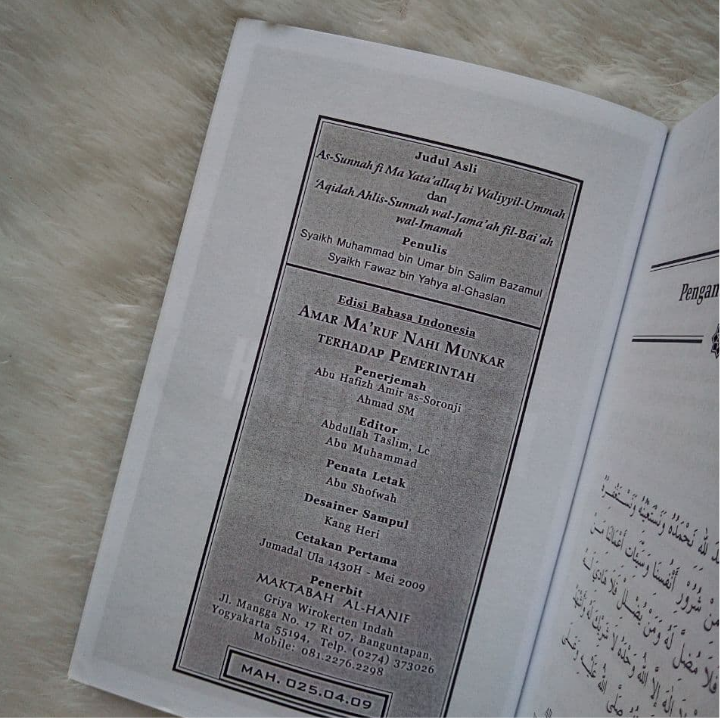 Judul Asli
As-Sunnah fi Ma Yata'allaq bi Waliyyil-Ummah
dan
'Aqidah Ahlis-Sunnah wal-Jama'ah fil-Bai'ah
wal-Imamah
Penulis
Syaikh Muhammad bin Umar bin Salim Bazamul
Syaikh Fawaz bin Yahya al-Ghaslan
Edisi Bahasa Indonesia
AMAR MA'RUF NAHI MUNKAR
TERHADAP PEMERINTAH
Penerjemah
Abu Hafizh Amir as-Soronji
Ahmad SM
Editor
Abdullah Taslim, Lc
Abu Muhammad
Penata Letak
Abu Shofwah
Desainer Sampul
Kang Heri
Cetakan Pertama
Jumadal Ula 1430H - Mei 2009
Penerbit
MAKTABAH AL-HANIF
Griya Wirokerten Indah
Jl. Mangga No. 17 Rt 07, Banguntapan,
Yogyakarta 55194, Telp. (0274) 373026
Mobile: 081.2276.2298
MAH. 025.04.09
Pengan
لله نَحْمَدُهُ وَنَسْتَعِيْنُهُ وَنَسْتَغْفِرُهُ
مِنْ شُرُوْرِ أَنْفُسِنَا وَسَيِّئَاتِ أَعْمَالِنَا مَنْ
فَلَا مُضِلَّ لَهُ وَمَنْ يُضْلِلْ فَلَا هَادِيَ لَهُ
إِلَهَ إِلَّا اللهُ وَحْدَهُ لَا شَرِيْكَ لَهُ
صَلَّى اللهُ عَلَيْهِ وَعَلَى